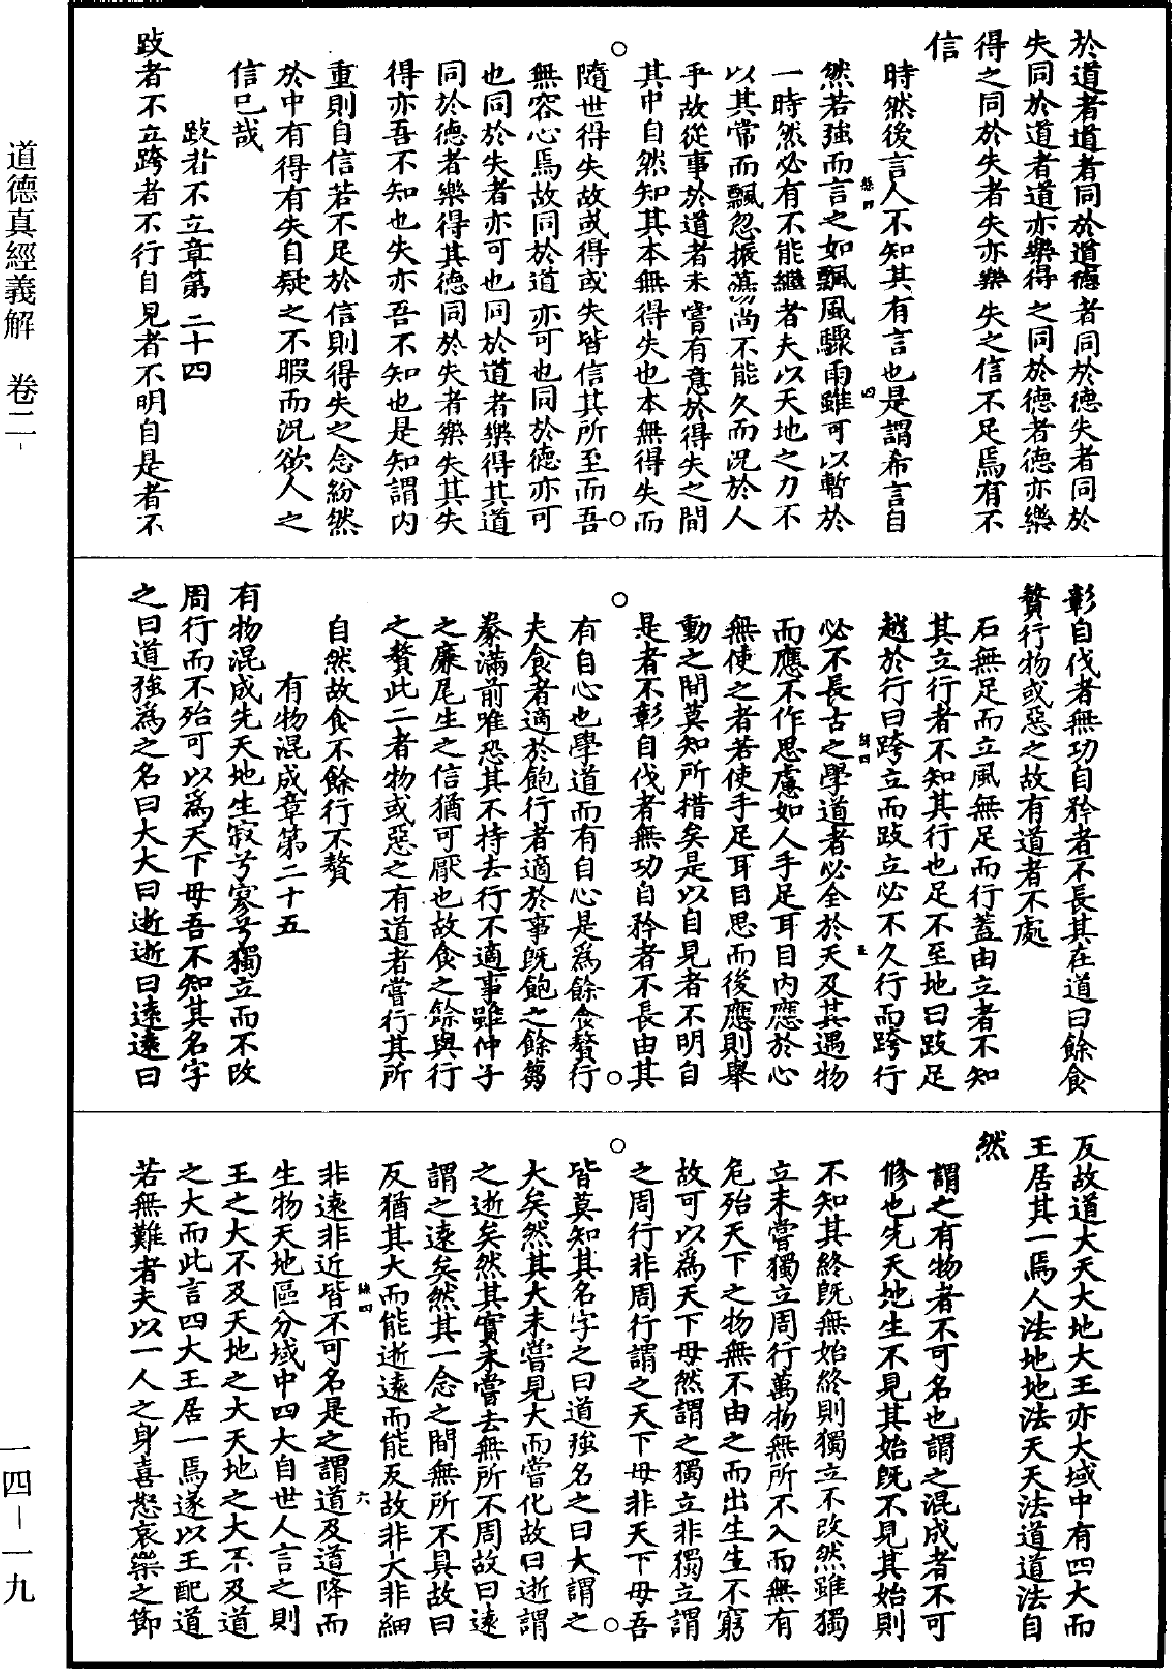 於道者道者同於道德者同於德失者同於
失同於道者道亦樂得之同於德者德亦樂
得之同於失者失亦樂失之信不足焉有不
信
時然後言人不知其有言也是謂希言自
然若強而言之如飄風驟雨雖可以暫於
一時然必有不能繼者夫以天地之力不
以其常而飄忽振蕩尚不能久而況於人
乎故從事於道者未嘗有意於得失之間
其中自然知其本無得失也本無得失而
隨世得失故或得或失皆信其所至而吾
無容心焉故同於道亦可也同於德亦可
也同於失者亦可也同於道者樂得其道
同於德者樂得其德同於失者樂失其失
得亦吾不知也失亦吾不知也是知謂內
重則自信若不足於信則得失之念紛然
於中有得有失自疑之不暇而況欲人之
信已哉
跂者不立章第二十四
跂者不立跨者不行自見者不明自是者不
彰自伐者無功自矜者不長其在道曰餘食
贅行物或惡之故有道者不處
石無足而立風無足而行蓋由立者不知
其立行者不知其行也足不至地曰跂足
越於行曰跨立而跂立必不久行而跨行
必不長古之學道者必全於天及其遇物
而應不作思慮如人手足耳目內應於心
無使之者若使手足耳目思而後應則舉
動之間莫知所措矣是以自見者不明自
是者不彰自伐者無功自矜者不長由其
有自心也學道而有自心是為餘食贅行
夫食者適於飽行者適於事既飽之餘芻
豢滿前唯恐其不持去行不適事雖仲子
之廉尾生之信猶可厭也故食之餘與行
之贅此二者物或惡之有道者嘗行其所
自然故食不餘行不贅
有物混成章第二十五
有物混成先天地生寂兮寥兮獨立而不改
周行而不殆可以為天下母吾不知其名字
之曰道強為之名曰大大曰逝逝曰遠遠曰
反故道大天大地大王亦大域中有四大而
王居其一焉人法地地法天天法道道法自
然
謂之有物者不可名也謂之混成者不可
修也先天地生不見其始既不見其始則
不知其終既無始終則獨立不改然雖獨
立未嘗獨立周行萬物無所不入而無有
危殆天下之物無不由之而出生生不窮
故可以為天下母然謂之獨立非獨立謂
之周行非周行謂之天下母非天下母吾
皆莫知其名字之曰道強名之曰大謂之
大矣然其大未嘗見大而嘗化故曰逝謂
之逝矣然其實未嘗去無所不周故曰遠
謂之遠矣然其一念之間無所不具故曰
反猶其大而能逝遠而能反故非大非細
非遠非近皆不可名是之謂道及道降而
生物天地區分域中四大自世人言之則
王之大不及天地之大天地之大不及道
之大而此言四大王居一焉遂以王配道
若無難者夫以一人之身喜怒哀樂之節
道德真經義解 卷二
一四－一九